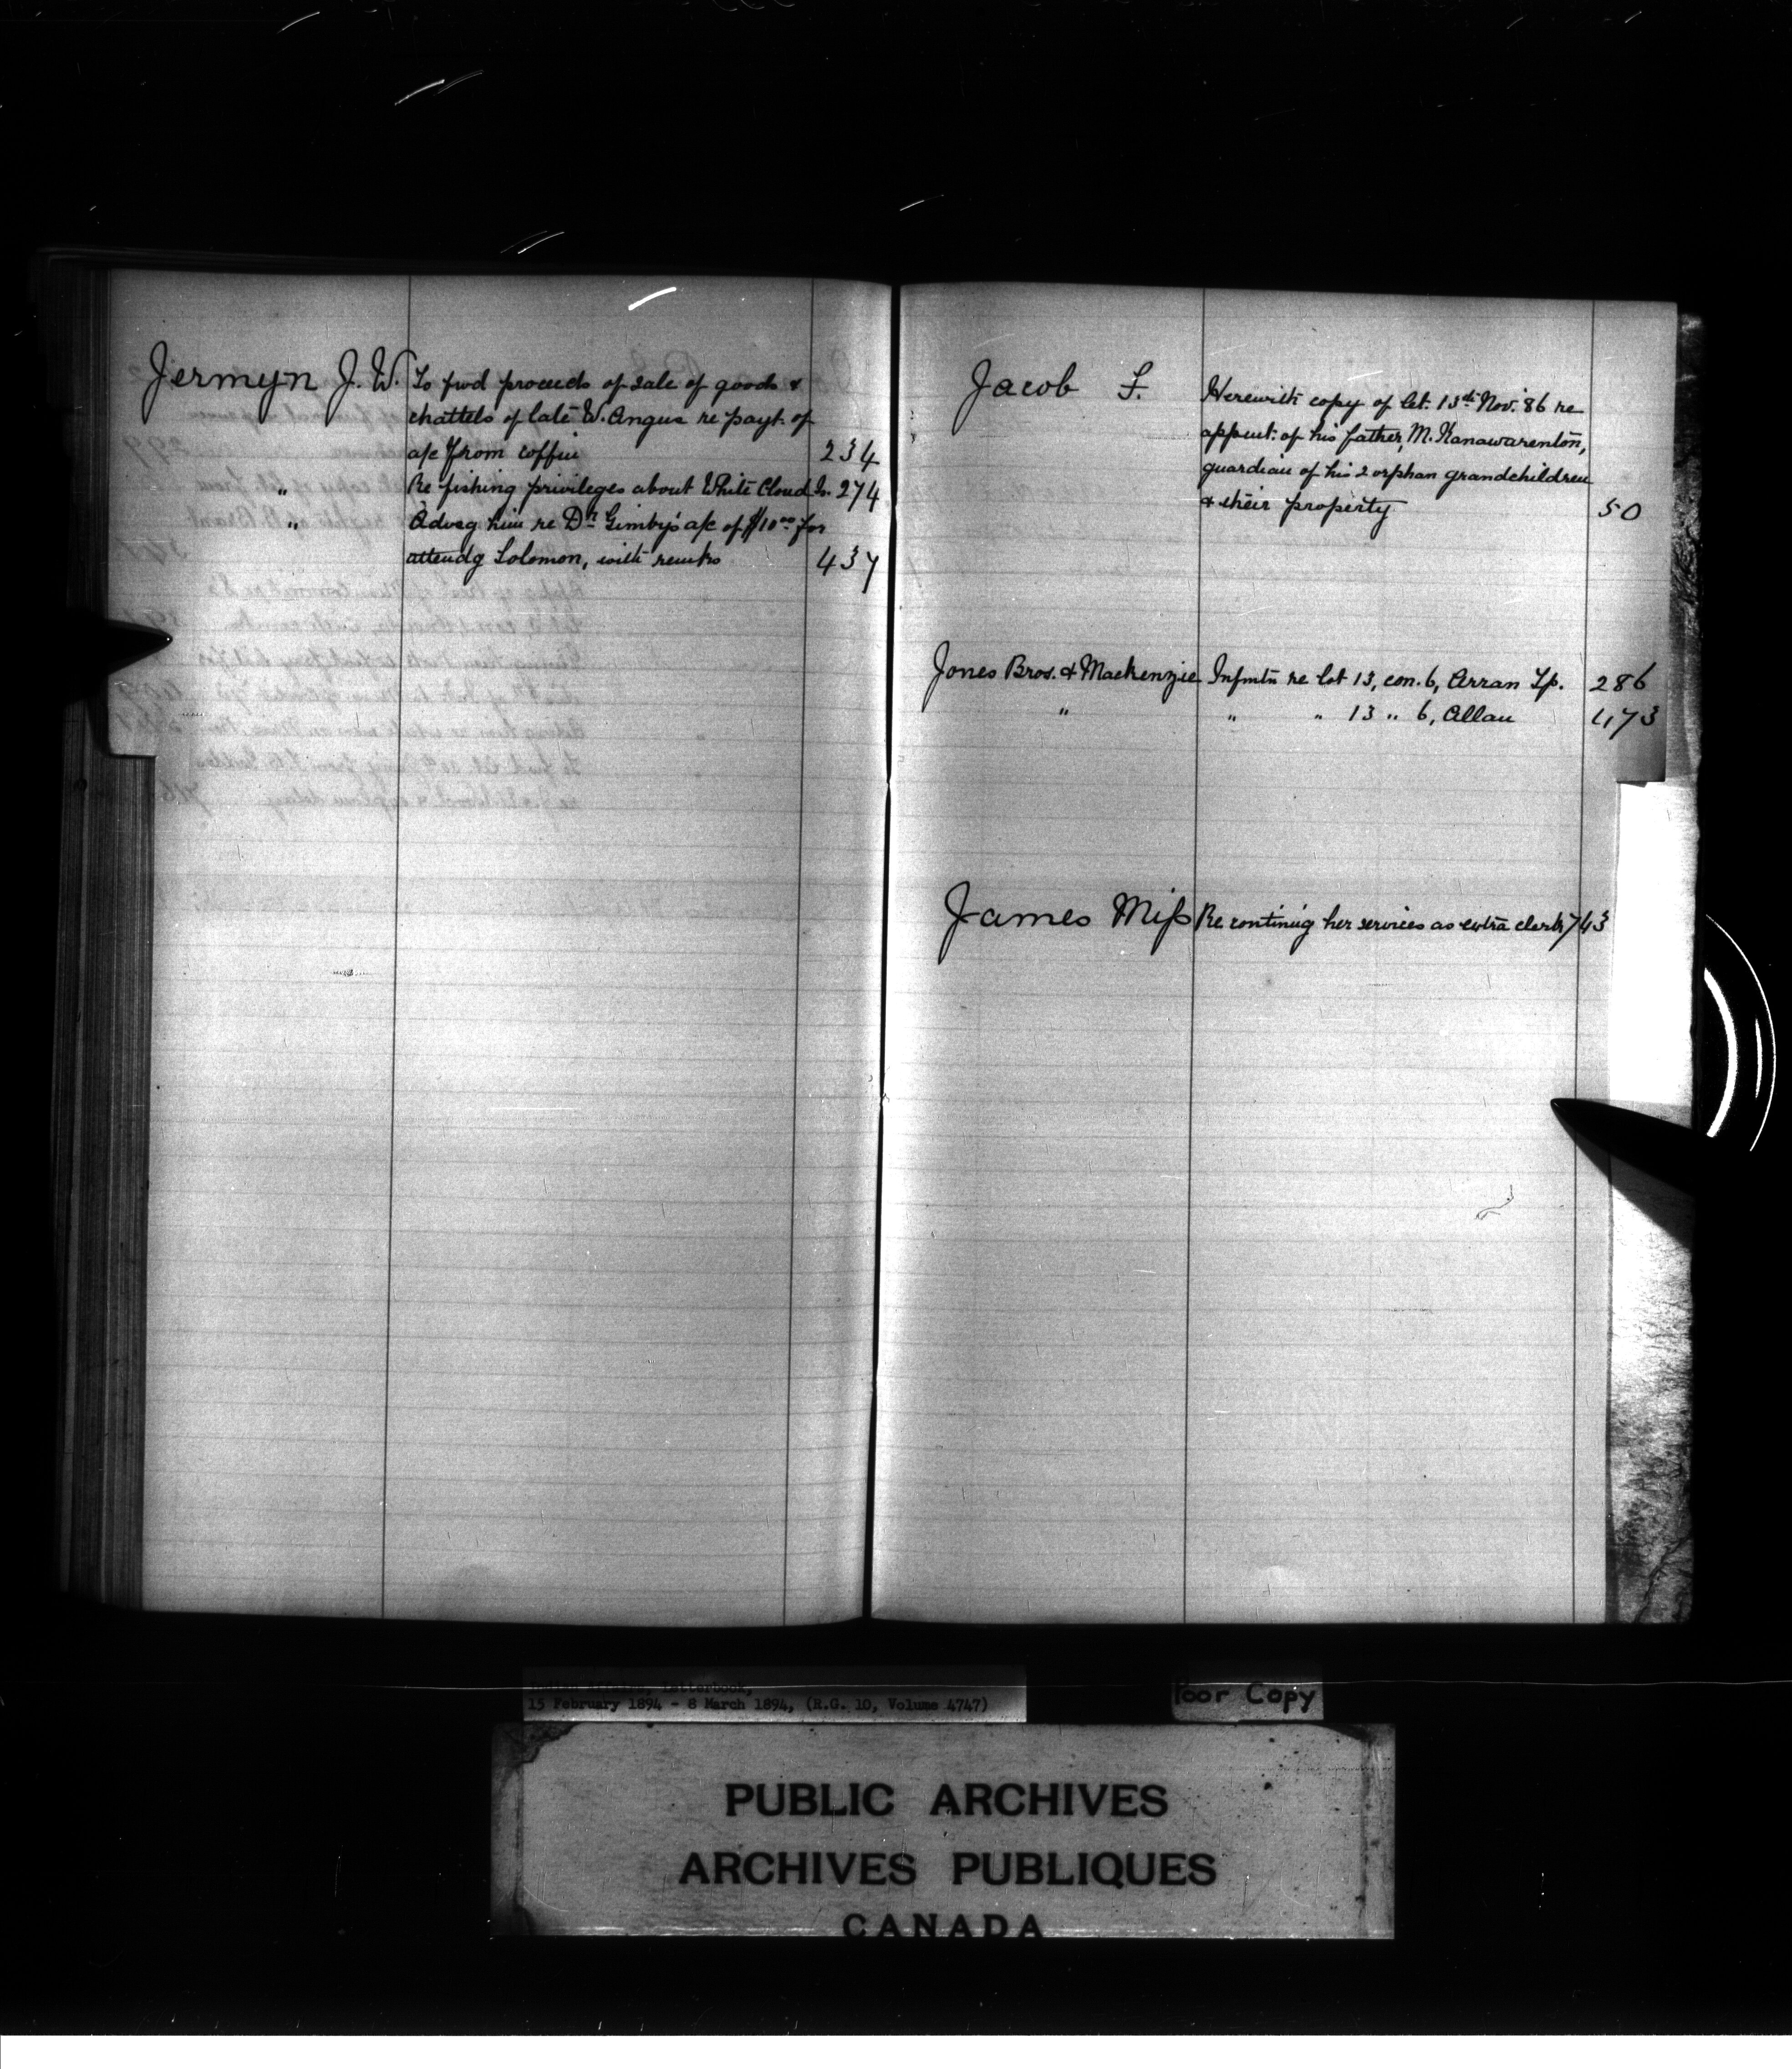 Jermyn J. W. To fwd proceeds of sale of goods &
chattels of late W. Angus re payt. of
a/c from coffin 234
" Re fishing privileges about White Cloud Is. 274
" Advsg him re Dr Gimby's a/c of $10.00 for
attendg Solomon, with remks 437
Jacob F. Herewith copy of let. 13th Nov. 86 re
appmt. of his father, M. Kanawarenton,
guardian of his 2 orphan grandchildren
& their property 50
Jones Bros. & Mackenzie Infmtn re lot 13, con. 6, Arran Tp. 286
" " " 13 " 6, Allan 473
James Miss Re continig her services as extra clerk 743
Letterbook,
15 February 1894 - 8 March 1894, (R.G. 10, Volume 4747)
Poor Copy
PUBLIC ARCHIVES
ARCHIVES PUBLIQUES
CANADA